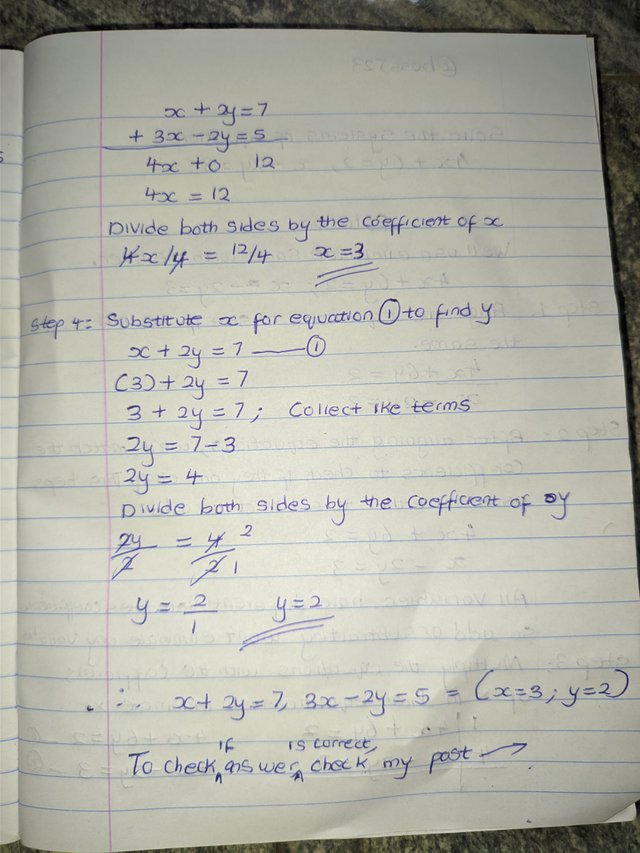 x + 2y = 7
+ 3x - 2y = 5
4x + 0 12
4x = 12
Divide both sides by the coefficient of x
4x/4 = 12/4 x = 3
Step 4: Substitute x for equation ① to find y
x + 2y = 7 —— ①
(3) + 2y = 7
3 + 2y = 7; Collect like terms
2y = 7 - 3
2y = 4
Divide both sides by the coefficient of y
2y/2 = 4/2 2/1
y = 2/1 y = 2
∴ x + 2y = 7, 3x - 2y = 5 = (x = 3; y = 2)
To check if answer is correct, check my post →